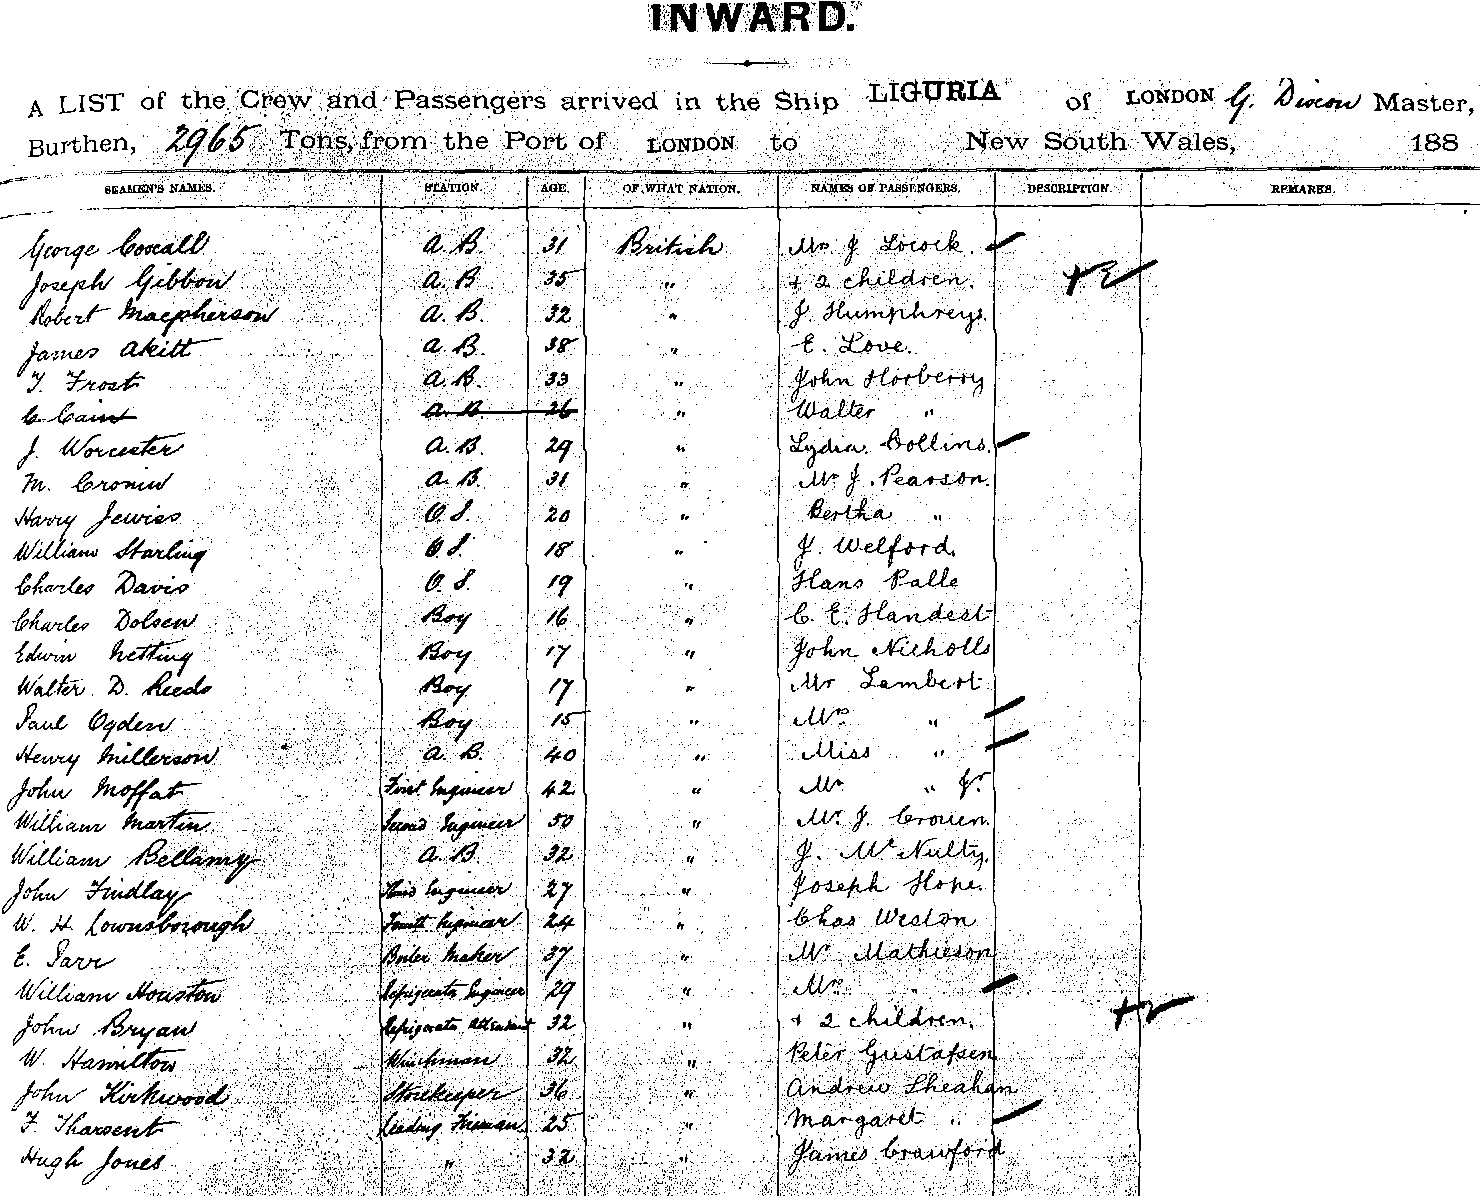 INWARD.
A LIST of the Crew and Passengers arrived in the Ship LIGURIA of LONDON G. Dixon Master,
Burthen, 2965 Tons, from the Port of LONDON to New South Wales, 188
SEAMEN'S NAMES. STATION. AGE. OF WHAT NATION. NAMES OF PASSENGERS. DESCRIPTION. REMARKS.
George Coxall A.B. 31 British Mrs J Locock.
Joseph Gibbon A.B 35 " + 2 children. +2
Robert Macpherson A.B. 32 " J. Humphreys.
James Akitt A.B. 38 " E. Love.
T. Frost A.B. 33 " John Horberry
C Cain A.B 26 " Walter "
J. Worcester A.B. 29 " Lydia Collins.
M. Cronin A.B. 31 " Mr J. Pearson.
Harry Jewiss O.S. 20 " Bertha "
William Starling O.S. 18 " J. Welford.
Charles Davis O.S. 19 " Hans Palle
Charles Dolsen Boy 16 " C. E. Handest
Edwin Netting Boy 17 " John Nicholls
Walter D. Reeds Boy 17 " Mr Lambert
Paul Ogden Boy 15 " Mrs "
Henry Millerson A.B. 40 " Miss "
John Moffat First Engineer 42 " Mr " Jr
William Martin Second Engineer 50 " Mr J. Crouen.
William Bellamy A.B. 32 " J. McNulty.
John Findlay Third Engineer 27 " Joseph Hope.
W. H. Lownsborough Fourth Engineer 24 " Chas Weston
E. Parr Boiler Maker 37 " Mr Mathieson
William Houston Refrigerator Engineer 29 " Mrs "
John Bryan Refrigerator Attendant 32 " + 2 children. +2
W. Hamilton Winchman 32 " Peter Gustafsen
John Kirkwood Storekeeper 36 " Andrew Sheahan
F. Tharsent Leading Fireman 25 " Margaret "
Hugh Jones " 32 " James Crawford